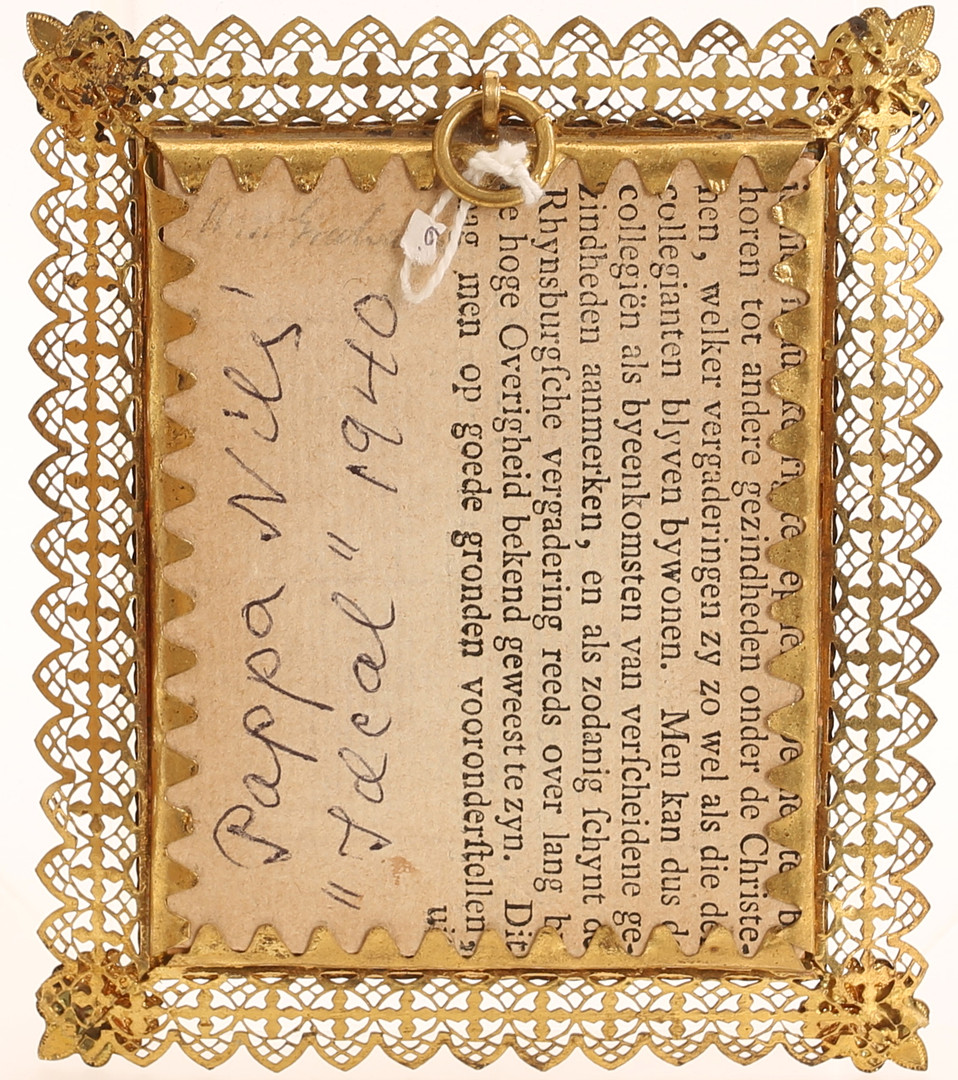 Pappa Nils'
" Ideal " 1940
horen tot andere gezindheden onder de Christe-
hen, welker vergaderingen zy zo wel als die de
collegianten blyven bywonen. Men kan dus d
collegiën als byeenkomsten van verſcheidene ge-
zindheden aanmerken, en als zodanig ſchynt de
Rhynsburgſche vergadering reeds over lang b
e hoge Overigheid bekend geweest te zyn. Dit
ag men op goede gronden vooronderſtellen,